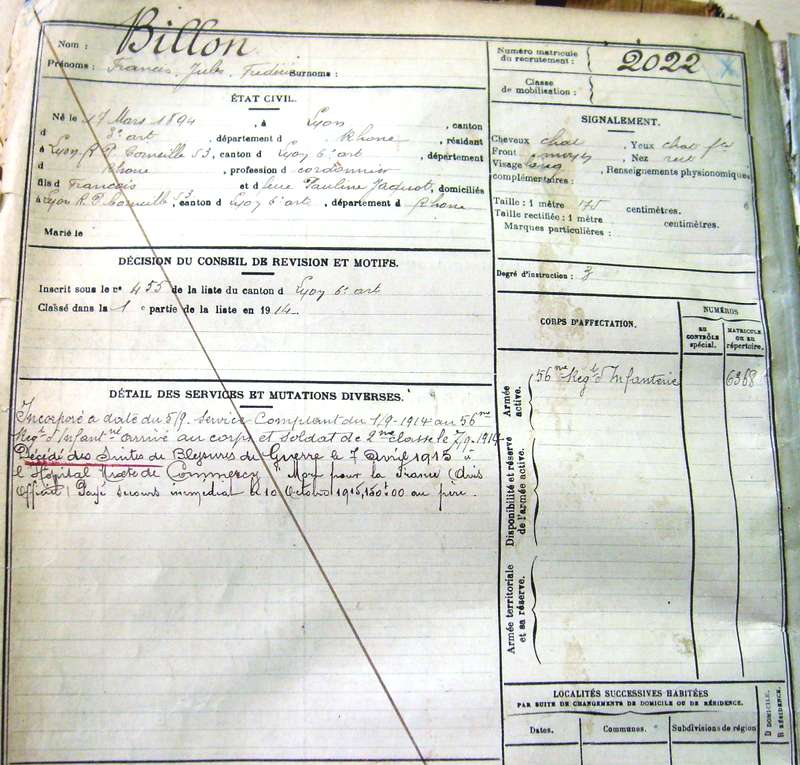 Nom : Billon
Prénoms : Francis, Jules, Frédéric Surnoms :
Numéro matricule
du recrutement : 2022
Classe
de mobilisation :
ÉTAT CIVIL.
Né le 17 Mars 1894, à Lyon, canton
d 3e art, département d Rhône, résidant
à Lyon, R. P. Corneille 53, canton d Lyon 6e art, département
d Rhône, profession d cordonnier
fils d François et d feue Pauline Jacquot, domiciliés
à Lyon R. P. Corneille 53, canton d Lyon 6e art, département d Rhône
Marié le
SIGNALEMENT.
Cheveux chat Yeux chat fcé
Front moyen Nez rect
Visage long Renseignements physionomiques
complémentaires :
Taille : 1 mètre 175 centimètres.
Taille rectifiée : 1 mètre centimètres.
Marques particulières :
DÉCISION DU CONSEIL DE REVISION ET MOTIFS.
Inscrit sous le n° 455 de la liste du canton d Lyon 6e art
Classé dans la 1e partie de la liste en 1914.
Degré d'instruction : 3
CORPS D'AFFECTATION.
NUMÉROS
AU CONTRÔLE spécial.
MATRICULE OU AU répertoire.
Armée active.
56me Regt d'Infanterie 6368
Disponibilité et réserve de l'armée active.
Armée territoriale et sa réserve.
DÉTAIL DES SERVICES ET MUTATIONS DIVERSES.
Incorporé à daté du 5/9. Service Comptant du 1/9-1914 au 56me
Regt d'Infantrie arrivé au corps et soldat de 2me classe le 7/9-1914
Décédé des Suites de Blessures de Guerre le 7 Avril 1915 à
l'Hôpital Mixte de Commercy "Mort pour la France (Avis
Officiel) Payé secours immédiat le 10 Octobre 1915, 150f00 au père.
LOCALITÉS SUCCESSIVES HABITÉES
PAR SUITE DE CHANGEMENTS DE DOMICILE OU DE RÉSIDENCE.
Dates. Communes. Subdivisions de région
D DOMICILE.
R RÉSIDENCE.